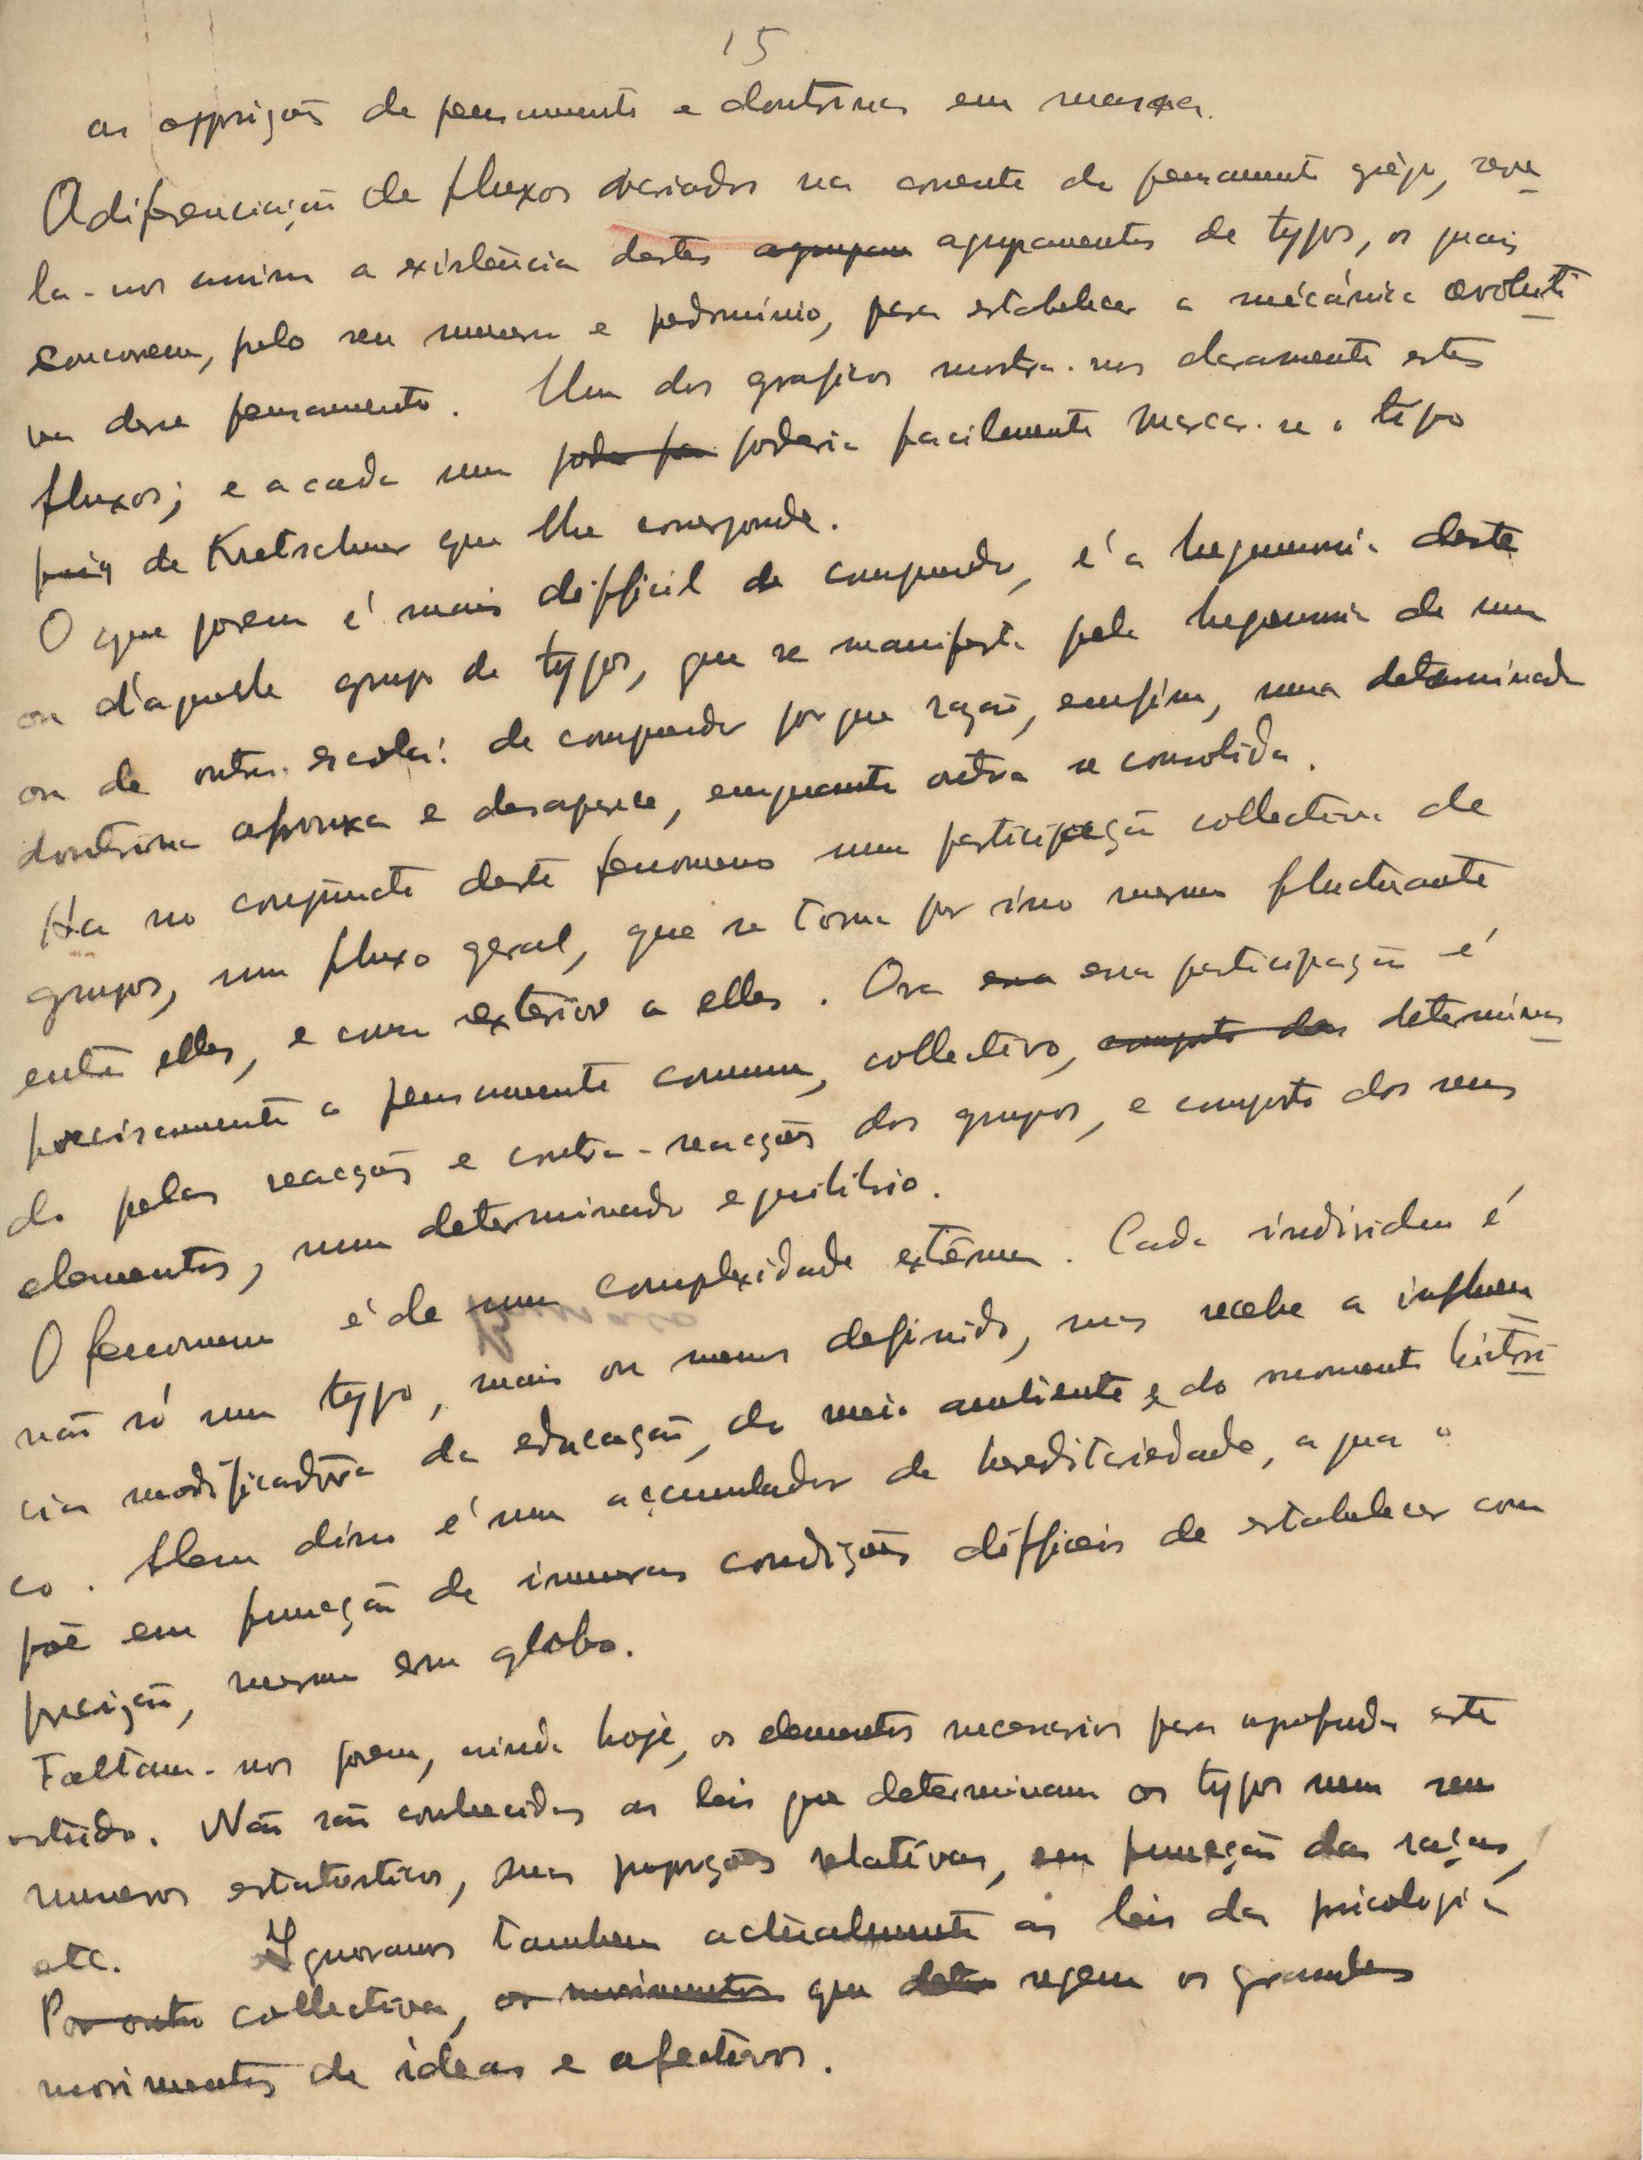 15
as opposições de pensamento e doutrinas em massa.
A diferenciação de fluxos variados na corrente do pensamento grego, reve
la-nos assim a existência destes agrupam agrupamentos de typos, os quais
concorrem, pelo seu numero e predomínio, para estabelecer a mecánica evoluti
va desse pensamento. Um dos graficos mostra-nos claramente estes
fluxos; e a cada um poder fa poderia facilmente marcar-se o tipo
de Kretschmer que lhe corresponde.
O que porem é mais difficil de comprender, é a hegemonia deste
ou d'aquele grupo de typos, que se manifesta pela hegemonia de uma
ou de outra escola: de comprender por que razão, emfim, uma determinada
doutrina afrouxa e desaparece, emquanto outra se consolida.
Ha no conjuncto deste fenomeno uma participação collectiva de
grupos, um fluxo geral, que se torna por isso mesmo fluctuante
entre elles, e como exterior a elles. Ora essa essa participação é
precisamente o pensamento comum, collectivo, composto dos determina
do pelas reacções e contra-reacções dos grupos, e composto dos seus
elementos, num determinado equilibrio.
O fenomeno é de uma complexidade extrema. Cada individuo é
não só um typo, mais ou menos definido, mas recebe a influen
cia modificadora da educação, do meio ambiente e do momento histori
co. Alem disso é um accumulador de hereditariedade, a qua o
põe em funcção de inumeras condições difficeis de estabelecer com
precizão, mesmo em globo.
Faltam-nos porem, ainda hoje, os elementos necessarios para aprofundar este
estudo. Não são conhecidas as leis que determinam os typos nem seus
numeros estatisticos, suas proporções relativas, em funcção das raças,
etc. Ignoramos tambem actualmente as leis da psicologia
Por outro collectiva, os movimentos que deter regem os grandes
movimentos de ideas e afectivos.